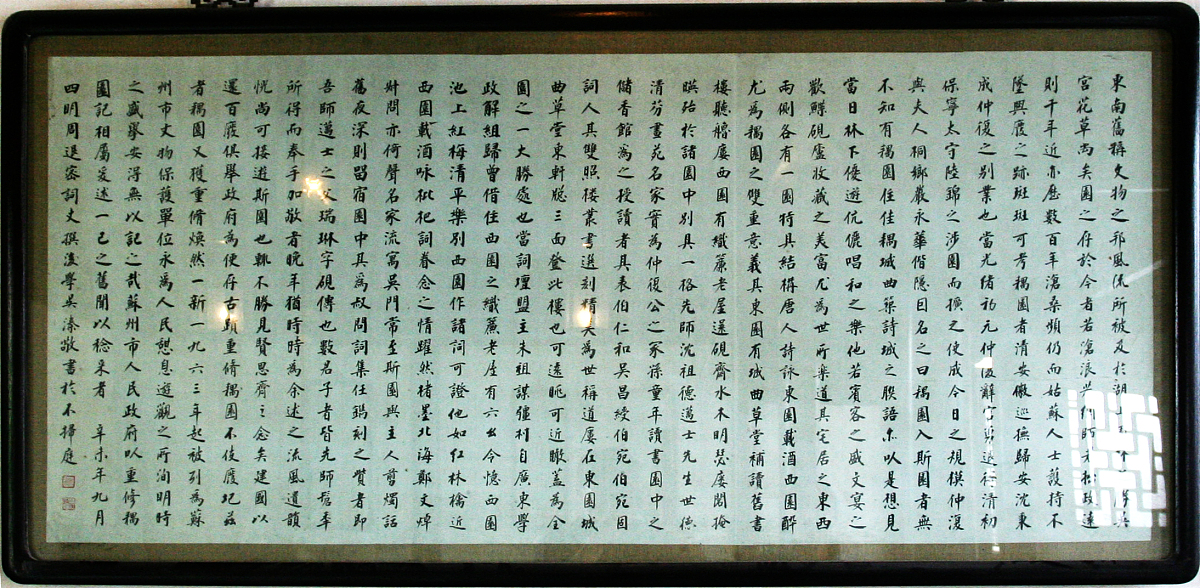 東南舊稱文物之邦風流所被及於
宮花草尚矣園之存於今者若滄浪
則千年近亦歷數百年滄桑頻仍而姑蘇人士護持不
墜興廢之跡斑斑可考耦園者清安徽巡撫歸安沈東
成仲復之別業也當光緒初元仲復辭官
保寧太守陸錦之涉園而擴之使成今日之規模仲復
與夫人桐鄉嚴永華偕隱目名之曰耦園入斯園者無
不知有耦園住佳耦城曲築詩城之聯語亦以是想見
當日林下優遊伉儷唱和之樂他若賓客之盛文宴之
歡鰈硯廬收藏之美富尤為世所樂道其宅居之東西
兩側各有一園特具結構唐人詩詠東園載酒西園醉
尤為耦園之雙重意義其東園有城曲草堂補讀舊書
樓聽櫓廔西園有織簾老屋還硯齋水木明瑟廔閣掩
暎殆於諸園中別具一格先師沈祖德邁士先生世德
清芬畫苑名家實為仲復公之冢孫童年讀書園中之
儲香館為之授讀者其表伯仁和吳昌綬伯宛伯宛固
詞人其雙照樓叢書選刻精美為世稱道廔在東園城
曲草堂東軒牕三面登此樓也可遠眺可近瞰蓋為全
園之一大勝處也當詞壇盟主朱祖謀彊村自廣東學
政解組歸曾借住西園之織簾老屋有六幺令憶西園
池上紅梅清平樂別西園作諸詞可證他如紅林檎近
西園載酒咏枇杷詞眷念之情躍然楮墨北海鄭文焯
叔問亦何聲名家流寓吳門常至斯園與主人剪燭話
舊夜深則留宿園中其為叔問詞集任鋟刻之贊者即
吾師邁士之父瑞琳字硯傳也數君子者皆先師髫年
所得而奉手加敬者晚年猶時時為余述之流風遺韻
恍尚可接遊斯園也輒不勝見賢思齊之念矣建國以
還百廢俱舉政府為使存古蹟重脩耦園不使廢圮茲
者耦園又獲重脩煥然一新一九六三年起被列為蘇
州市文物保護單位永為人民憩息遊觀之所洵明時
之盛舉安得無以記之哉蘇州市人民政府以重修耦
園記相屬爰述一己之舊聞以稔來者　辛未年九月
四明周退密詞丈撰後學吳溱敬書於不掃庭